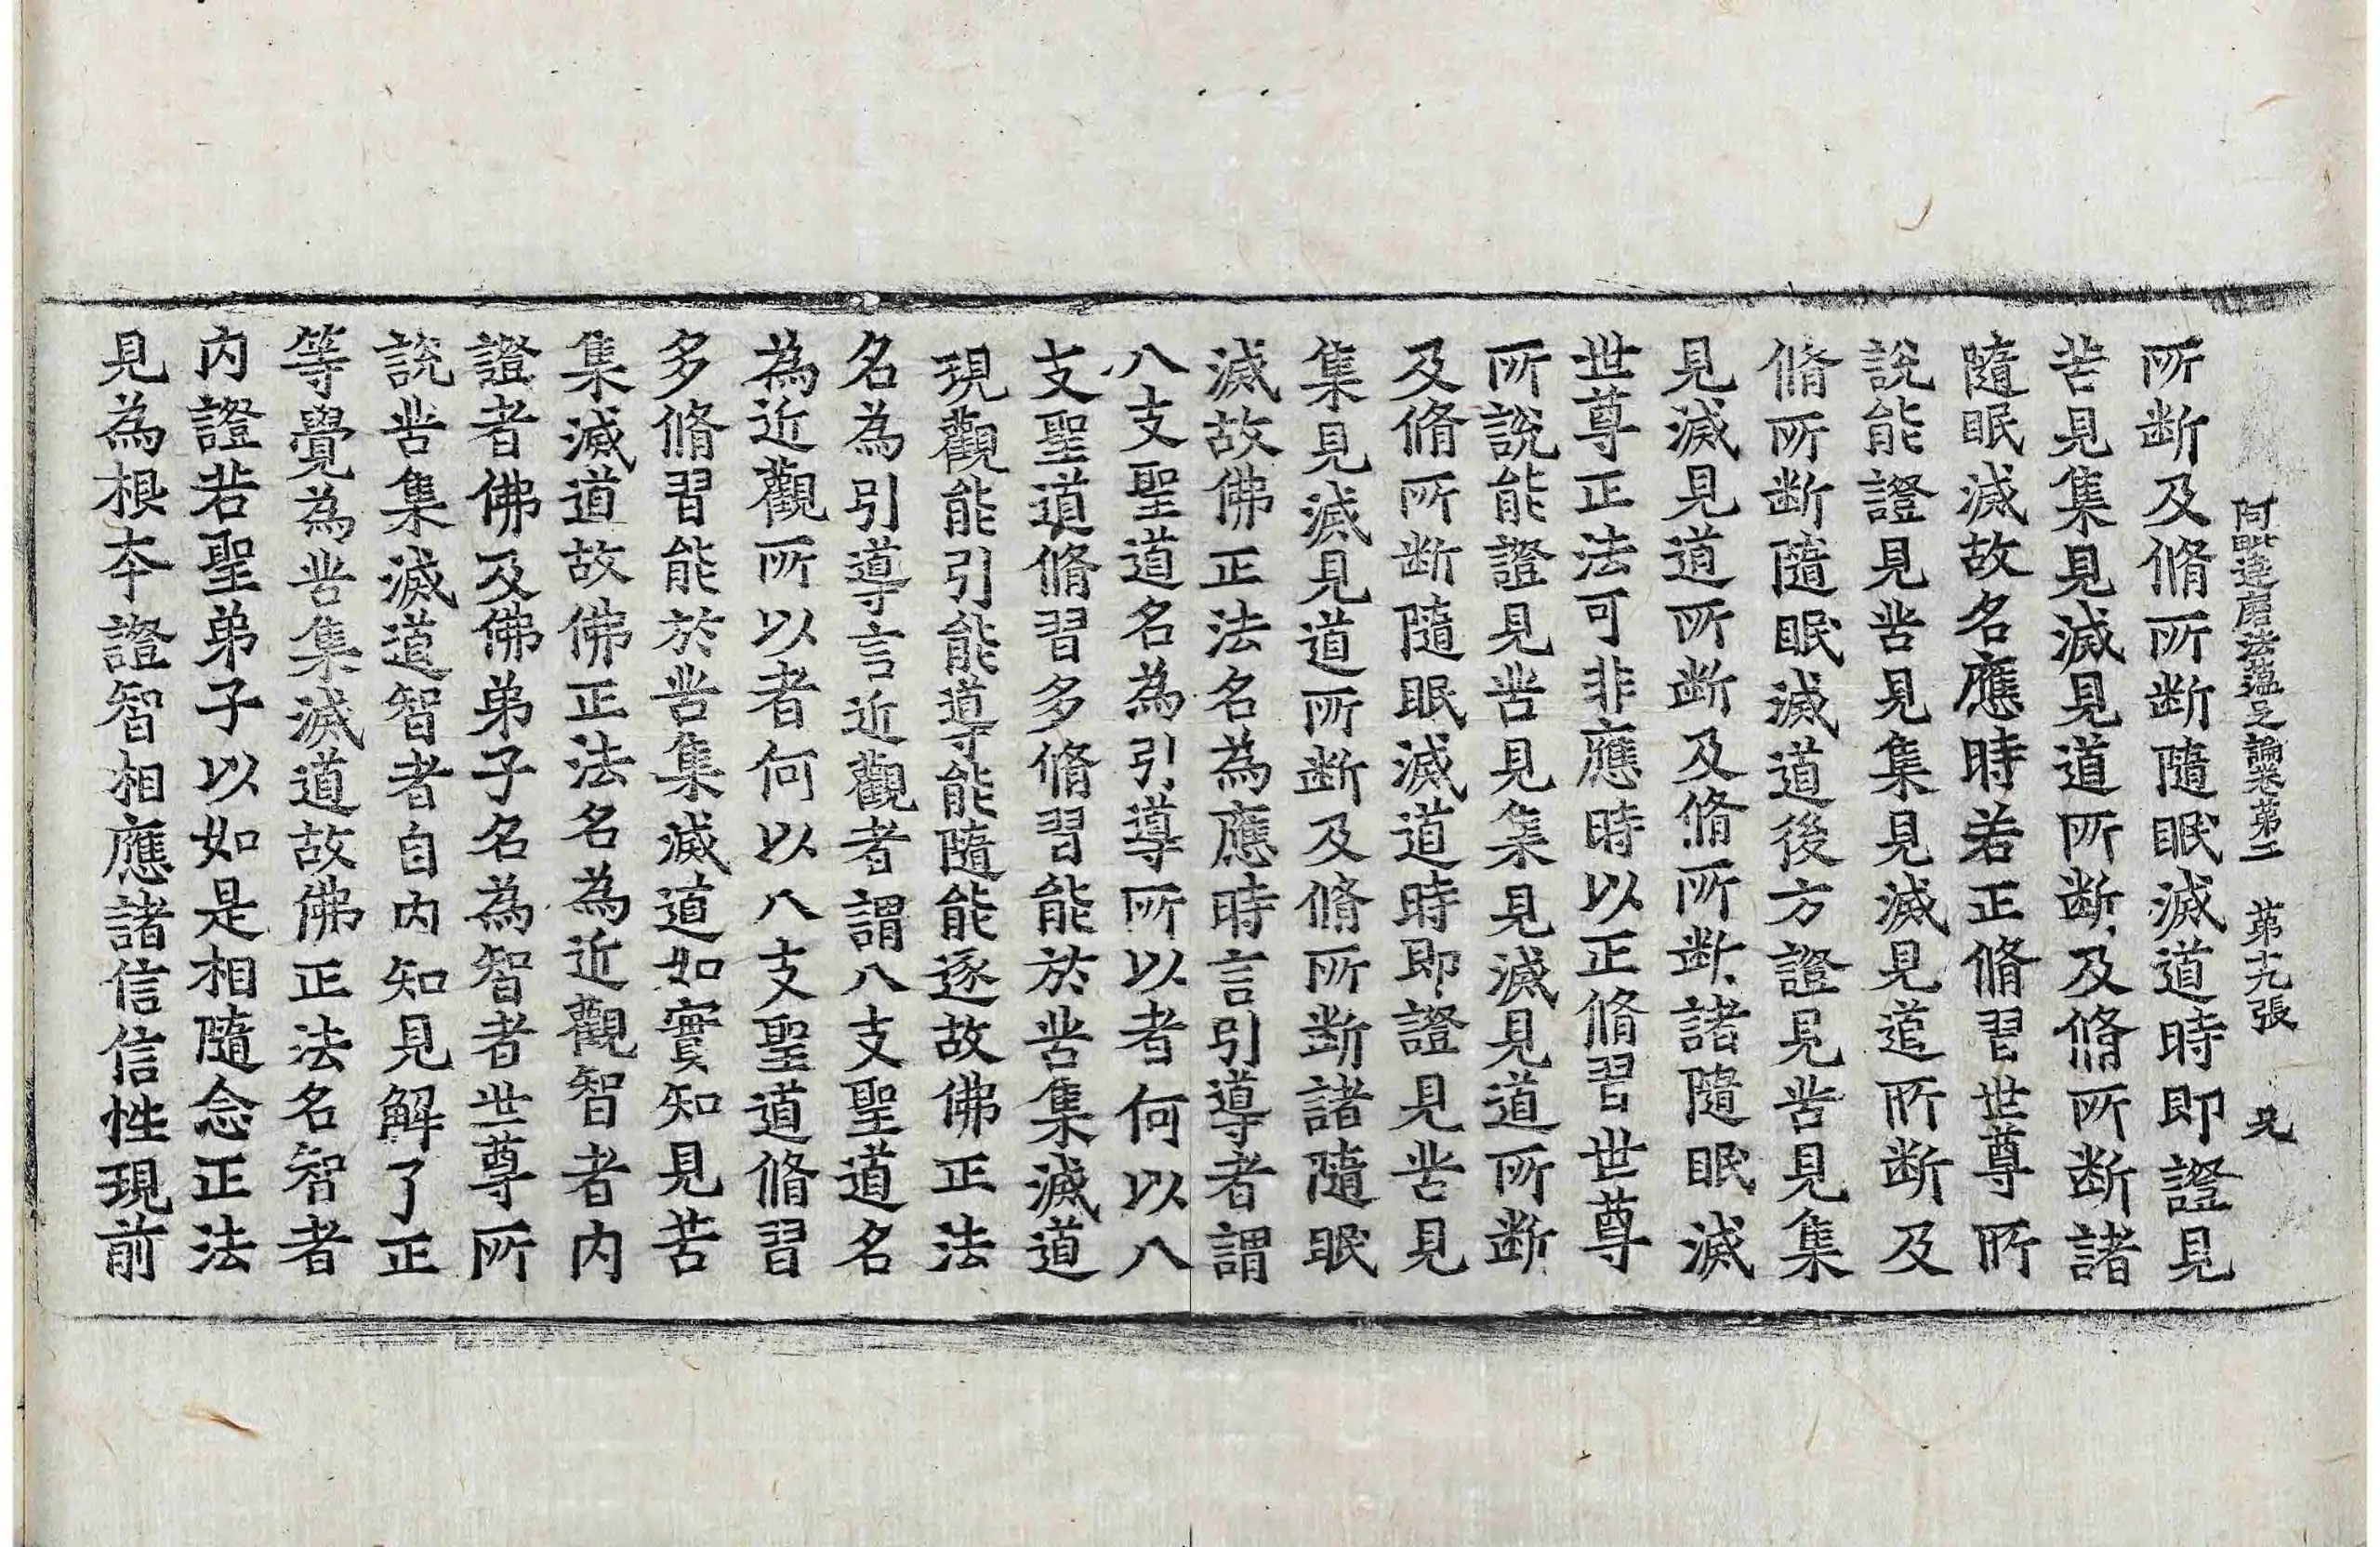 阿毗達磨法蘊足論卷第二　第十九張　兄
所断及脩所断隨眠滅道時即證見
苦見集見滅見道所断及脩所断諸
隨眠滅故名應時若正脩習世尊所
說能證見苦見集見滅見道所断及
脩所断隨眠滅道後方證見苦見集
見滅見道所断及脩所断諸隨眠滅
世尊正法可非應時以正脩習世尊
所說能證見苦見集見滅見道所断
及脩所断隨眠滅道時即證見苦見
集見滅見道所断及脩所断諸隨眠
滅故佛正法名為應時言引導者謂
八支聖道名為引導所以者何以八
支聖道脩習多脩習能於苦集滅道
現觀能引能導能隨能逐故佛正法
名為引導言近觀者謂八支聖道名
為近觀所以者何以八支聖道脩習
多脩習能於苦集滅道如實知見苦
集滅道故佛正法名為近觀智者內
證者佛及佛弟子名為智者世尊所
說苦集滅道智者自內知見解了正
等覺為苦集滅道故佛正法名智者
內證若聖弟子以如是相隨念正法
見為根本證智相應諸信信性現前